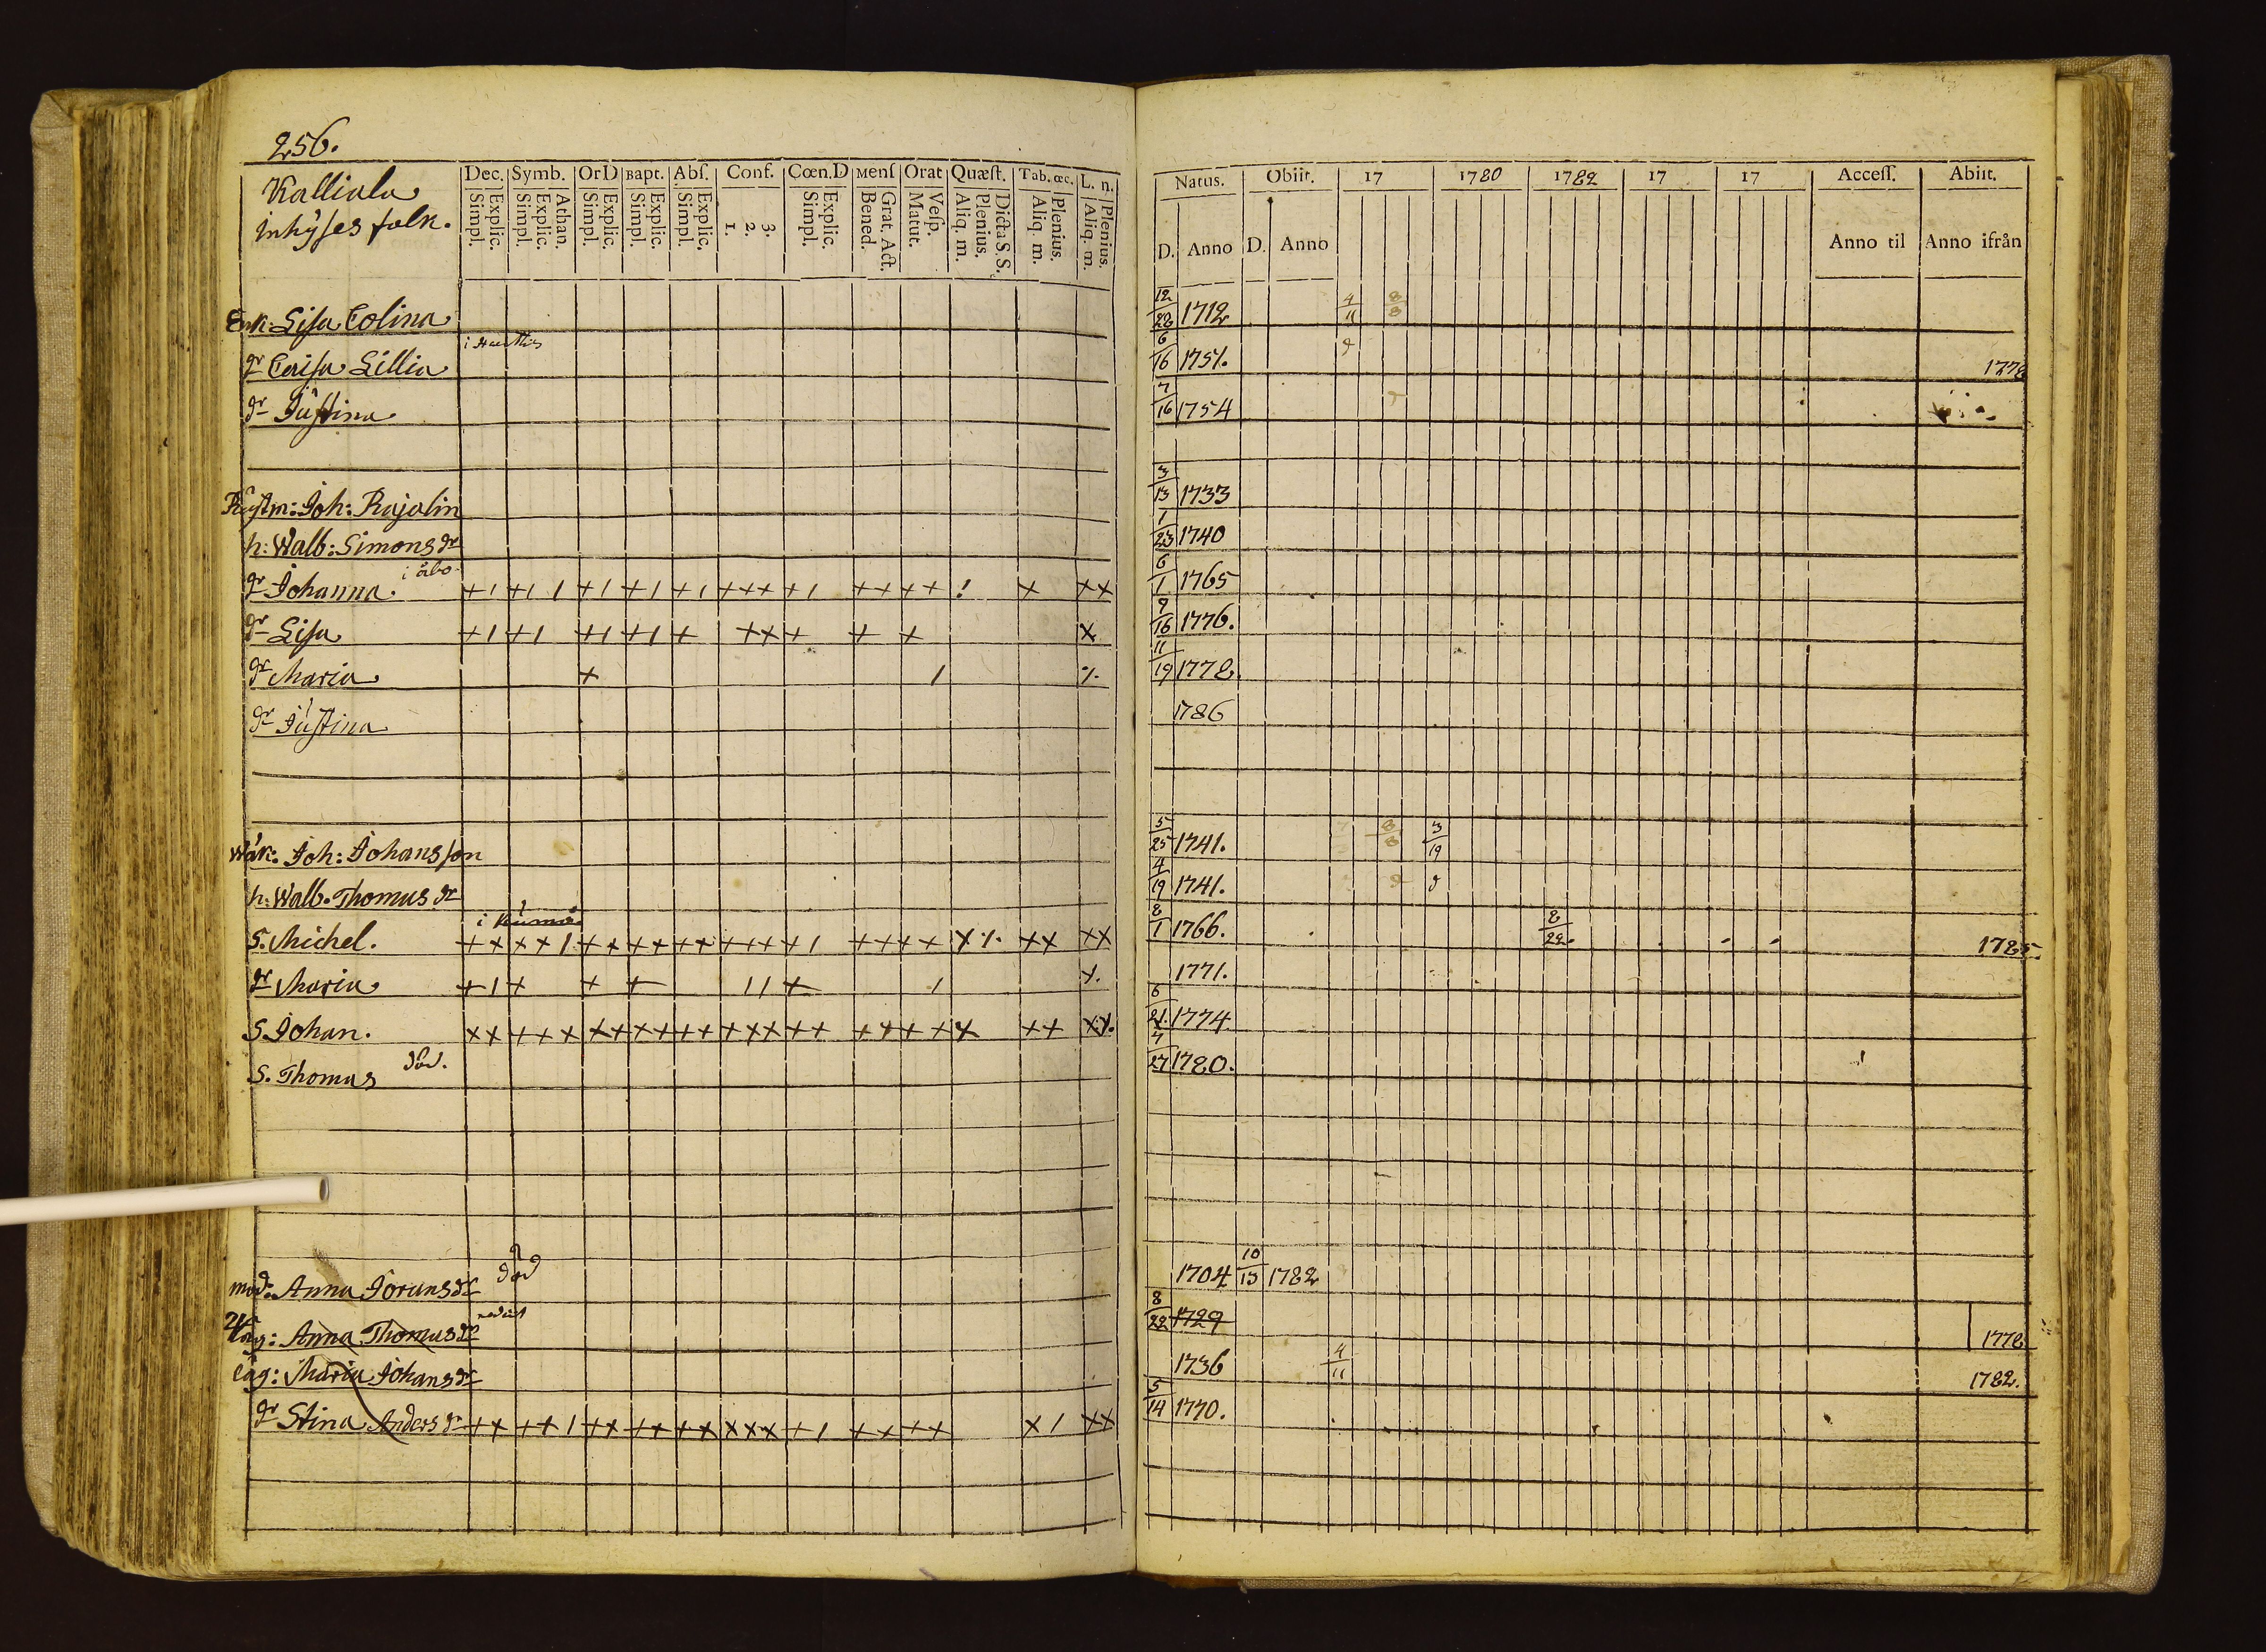 256.
Kalliala
inhyses folk.
Dec. Symb. OrD Bapt. Abs. Conf. Cœn.D Mens Orat Quæst. Tab.œc. L. n.
Explic. Simpl. Athan. Explic. Simpl. Explic. Simpl. Explic. Simpl. Explic. Simpl. 3. 2. 1. Explic. Simpl. Grat. Act. Bened. Vesp. Matut. Dicta S. S. Plenius. Aliq. m. Plenius. Aliq. m. Plenius. Aliq. m.
Natus. Obiit. 17 1780 1782 17 17 Access. Abiit.
D. Anno D. Anno Anno til Anno ifrån
Enk: Lisa Colina 12/22 1712 4/11 8/8
dr Caisa Lillia 6/16 1751. 1778
dr Justina 7/16 1754
Rustm: Joh: Rajalin 3/13 1733
h: Walb: Simonsdr 1/23 1740
dr Johanna. i åbo + 1 + 1 1 + 1 + 1 + 1 + + + + 1 + + + + ! + + + 6/1 1765
dr Lisa + 1 + 1 + 1 + 1 + + + + + + x 9/16 1776.
dr Maria + 1 11/19 1778.
dr Justina 1786
Wäk: Joh: Johansson 5/25 1741. 8/8 3/19
h: Walb. Thomasdr 4/19 1741.
S. Michel. i Kumo + + + + 1 + + + + + + + + + + 1 + + + + x + + x x 8/1 1766. 8/22. 1785.
dr Maria + 1 + + + 1 1 + 1 1771.
S. Johan. x x + + x x + + + + + + x x + + + + + + x + + x 6/21. 1774
S. Thomas död. 7/27 1780.
mod. Anna Joransdr död 1704 10/13 1782
Anna Thomasdr 8/22 1729 1778
Lag: Maria Johansdr 1736 4/11 1782.
dr Stina Andersdr + + + + 1 + + + + + + x x x + 1 + + + + x 1 x x 5/14 1770.